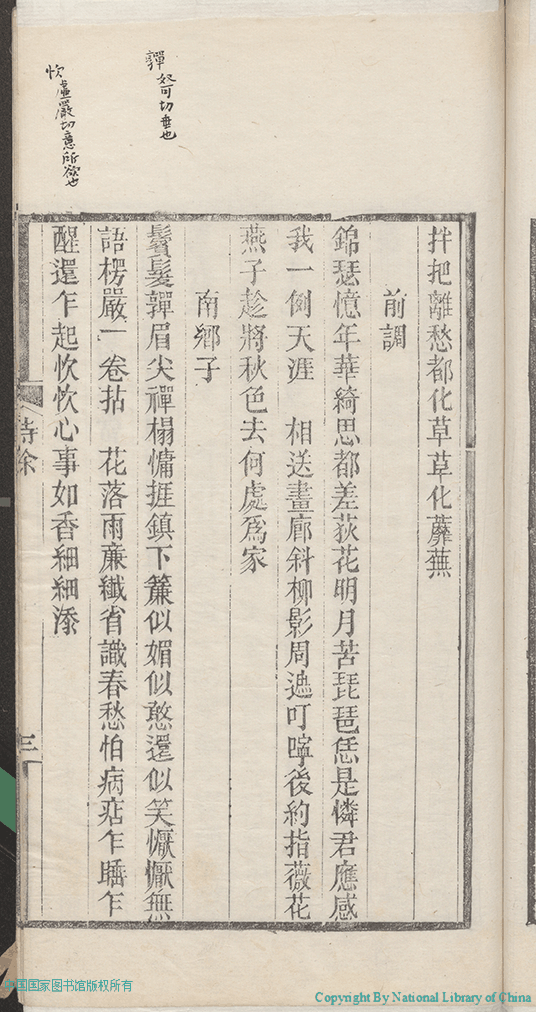 拌把離愁都化草草化蘼蕪
前調
錦瑟憶年華綺思都差荻花明月苦琵琶恁是憐君應感
我一例天涯　相送畫廊斜柳影周遮叮嚀後約指薇花
燕子趁將秋色去何處爲家
南鄉子
鬢髮嚲眉尖禪榻慵捱鎮下簾似媚似憨還似笑懨懨無
語楞嚴一卷拈　花落雨廉纖省識春愁怕病痁乍睡乍
醒還乍起忺忺心事如香細細添
嚲奴可切垂也
忺虛嚴切意所欲也
詩余
三
中国国家图书馆版权所有
Copyright By National Library of China